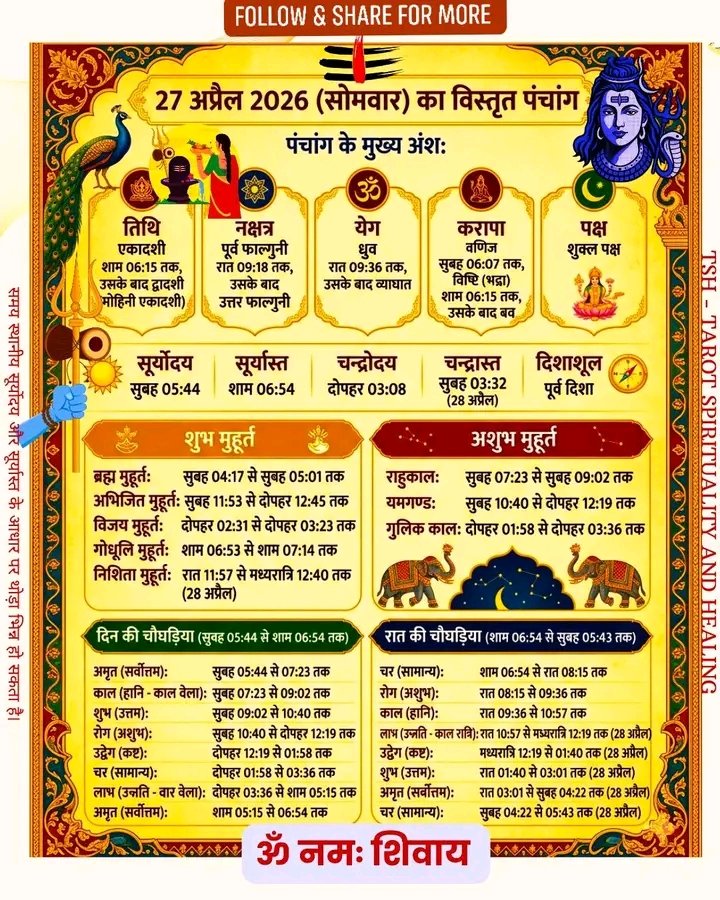 FOLLOW & SHARE FOR MORE
27 अप्रैल 2026 (सोमवार) का विस्तृत पंचांग
पंचांग के मुख्य अंश:
तिथि
एकादशी
शाम 06:15 तक,
उसके बाद द्वादशी
मोहिनी एकादशी)
नक्षत्र
पूर्व फाल्गुनी
रात 09:18 तक,
उसके बाद
उत्तर फाल्गुनी
येग
ध्रुव
रात 09:36 तक,
उसके बाद व्याघात
करापा
वणिज
सुबह 06:07 तक,
विष्टि (भद्रा)
शाम 06:15 तक,
उसके बाद बव
पक्ष
शुक्ल पक्ष
सूर्योदय
सुबह 05:44
सूर्यास्त
शाम 06:54
चन्द्रोदय
दोपहर 03:08
चन्द्रास्त
सुबह 03:32
(28 अप्रैल)
दिशाशूल
पूर्व दिशा
शुभ मुहूर्त
ब्रह्म मुहूर्त: सुबह 04:17 से सुबह 05:01 तक
अभिजित मुहूर्त: सुबह 11:53 से दोपहर 12:45 तक
विजय मुहूर्त: दोपहर 02:31 से दोपहर 03:23 तक
गोधूलि मुहूर्त: शाम 06:53 से शाम 07:14 तक
निशिता मुहूर्त: रात 11:57 से मध्यरात्रि 12:40 तक
(28 अप्रैल)
अशुभ मुहूर्त
राहुकाल: सुबह 07:23 से सुबह 09:02 तक
यमगण्ड: सुबह 10:40 से दोपहर 12:19 तक
गुलिक काल: दोपहर 01:58 से दोपहर 03:36 तक
दिन की चौघड़िया (सुवह 05:44 से शाम 06:54 तक)
अमृत (सर्वोत्तम): सुबह 05:44 से 07:23 तक
काल (हानि - काल वेला): सुबह 07:23 से 09:02 तक
शुभ (उत्तम): सुबह 09:02 से 10:40 तक
रोग (अशुभ): सुबह 10:40 से दोपहर 12:19 तक
उद्वेग (कष्ट): दोपहर 12:19 से 01:58 तक
चर (सामान्य): दोपहर 01:58 से 03:36 तक
लाभ (उन्नति - वार वेला): दोपहर 03:36 से शाम 05:15 तक
अमृत (सर्वोत्तम): शाम 05:15 से 06:54 तक
रात की चौघड़िया (शाम 06:54 से सुबह 05:43 तक)
चर (सामान्य): शाम 06:54 से रात 08:15 तक
रोग (अशुभ): रात 08:15 से 09:36 तक
काल (हानि): रात 09:36 से 10:57 तक
लाभ (उन्नति - काल रात्रि): रात 10:57 से मध्यरात्रि 12:19 तक (28 अप्रैल)
उद्वेग (कष्ट): मध्यरात्रि 12:19 से 01:40 तक (28 अप्रैल)
शुभ (उत्तम): रात 01:40 से 03:01 तक (28 अप्रैल)
अमृत (सर्वोत्तम): रात 03:01 से सुबह 04:22 तक (28 अप्रैल)
चर (सामान्य): सुबह 04:22 से 05:43 तक (28 अप्रैल)
ॐ नमः शिवाय
समय स्थानीय सूर्योदय और सूर्यास्त के आधार पर थोड़ा भिन्न हो सकता है।
TSH - TAROT SPIRITUALITY AND HEALING